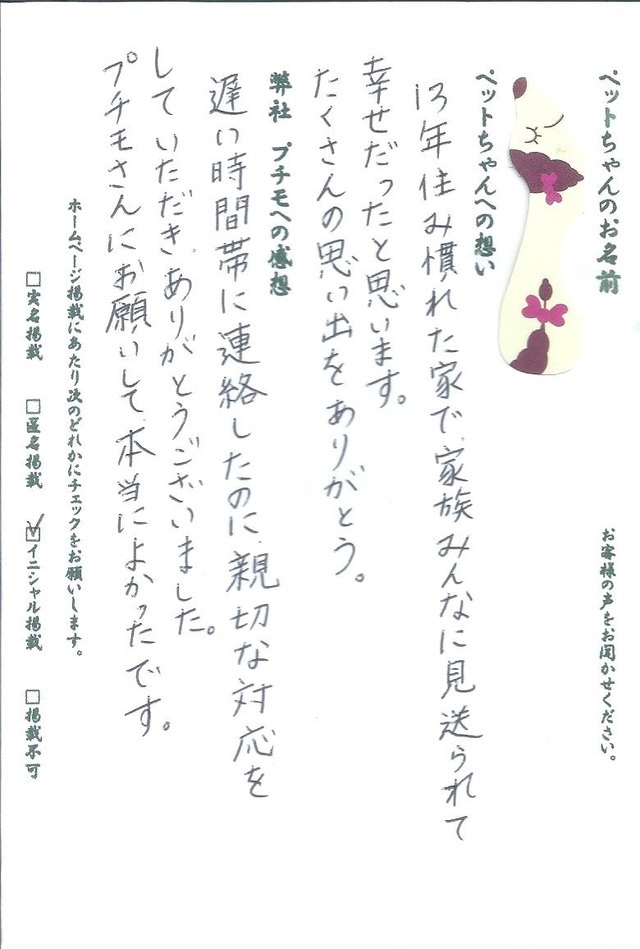 ペットちゃんのお名前
お客様の声をお聞かせください。
ペットちゃんへの想い
13年住み慣れた家で、家族みんなに見送られて
幸せだったと思います。
たくさんの思い出をありがとう。
弊社 プチモへの感想
遅い時間帯に連絡したのに、親切な対応を
していただき、ありがとうございました。
プチモさんにお願いして、本当によかったです。
ホームページ掲載にあたり次のどれかにチェックをお願いします。
□実名掲載 □匿名掲載 ☑イニシャル掲載 □掲載不可